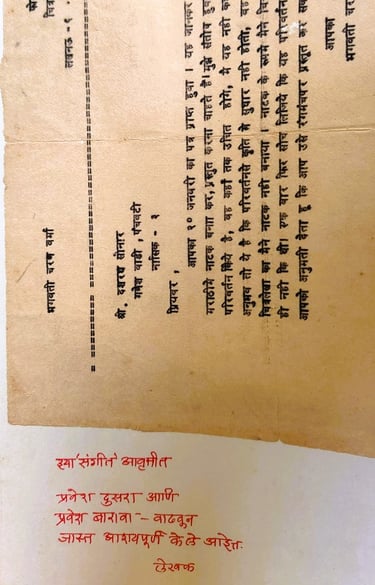 भगवती चरण वर्मा
लखनऊ - ६ .
श्री. दशरथ सोनार
गणेश वाडी , पंचवटी
नासिक - ३
प्रियवर ,
आपका २० जनवरी का पत्र प्राप्त हुवा । यह जानकर
मराठीमें नाटक बना कर, प्रस्तुत करना चाहते है। मुझे संतोष हुवा
परिवर्तन किये है, वह कहाँ तक उचित होंगे, मै यह नही
अनुभव तो ये है कि परिवर्तनसे कृति मे सुधार नही होता,
चित्रलेखा का मैने नाटक नही बनाया । नाटक के रूपमे मैने
ही नही कि थी। एक बार फिर सोच लिजिये कि यह परिवर्तन
आपको अनुमती देता हू कि आप उसे रंगमंचपर प्रस्तुत कर
आपका
भगवती चर
ह्या 'संगीत' आवृत्तीत
प्रवेश दुसरा आणि
प्रवेश बारावा - वाढवून
जास्त आशयपूर्ण केले आहेत.
लेखक